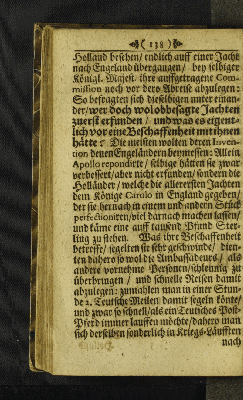 ( 138 )
Holland besehen / endlich auff einer Jacht
nach Engeland übergangen / bey selbiger
Königl. Majest. ihre auffgetragene Com-
mission noch vor dero Abreise abzulegen:
So befragten sich dieselbigen unter einan-
der / wer doch wol obbesagte Jachten
zuerst erfunden / und was es eigent-
lich vor eine Beschaffenheit mit ihnen
hätte? Die meisten wolten deren Inven-
tion denen Engeländern beymessen: Allein
Apollo repondirte / selbige hätten sie zwar
verbessert / aber nicht erfunden / sondern die
Holländer / welche die allerersten Jachten
dem Könige Carolo in Engeland gegeben /
der sie hernach in einem und andern Stück
perfectioniren / viel darnach machen lassen /
und käme eine auff tausend Pfund Ster-
ling zu stehen. Was ihre Beschaffenheit
betreffe / segelten sie sehr geschwinde / dien-
ten dahero so wol die Ambassadeurs / als
andere vornehme Personen / schleunig zu
überbringen / und schnelle Reisen damit
abzulegen: zumahlen man in einer Stun-
de 2. Teutsche Meilen damit segeln könte /
und zwar so schnell / als ein Teutsches Post-
Pferd immer lauffen möchte / dahero man
sich derselben sonderlich in Kriegs-Läufften
nach